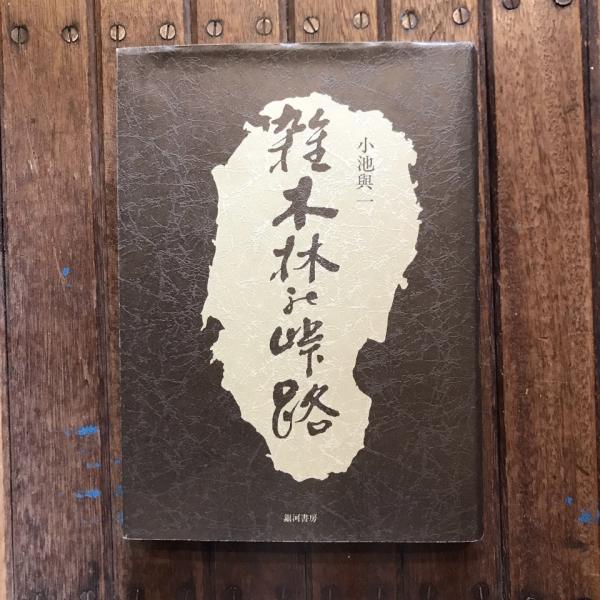 小池與一
雑木林の峠路
銀河書房